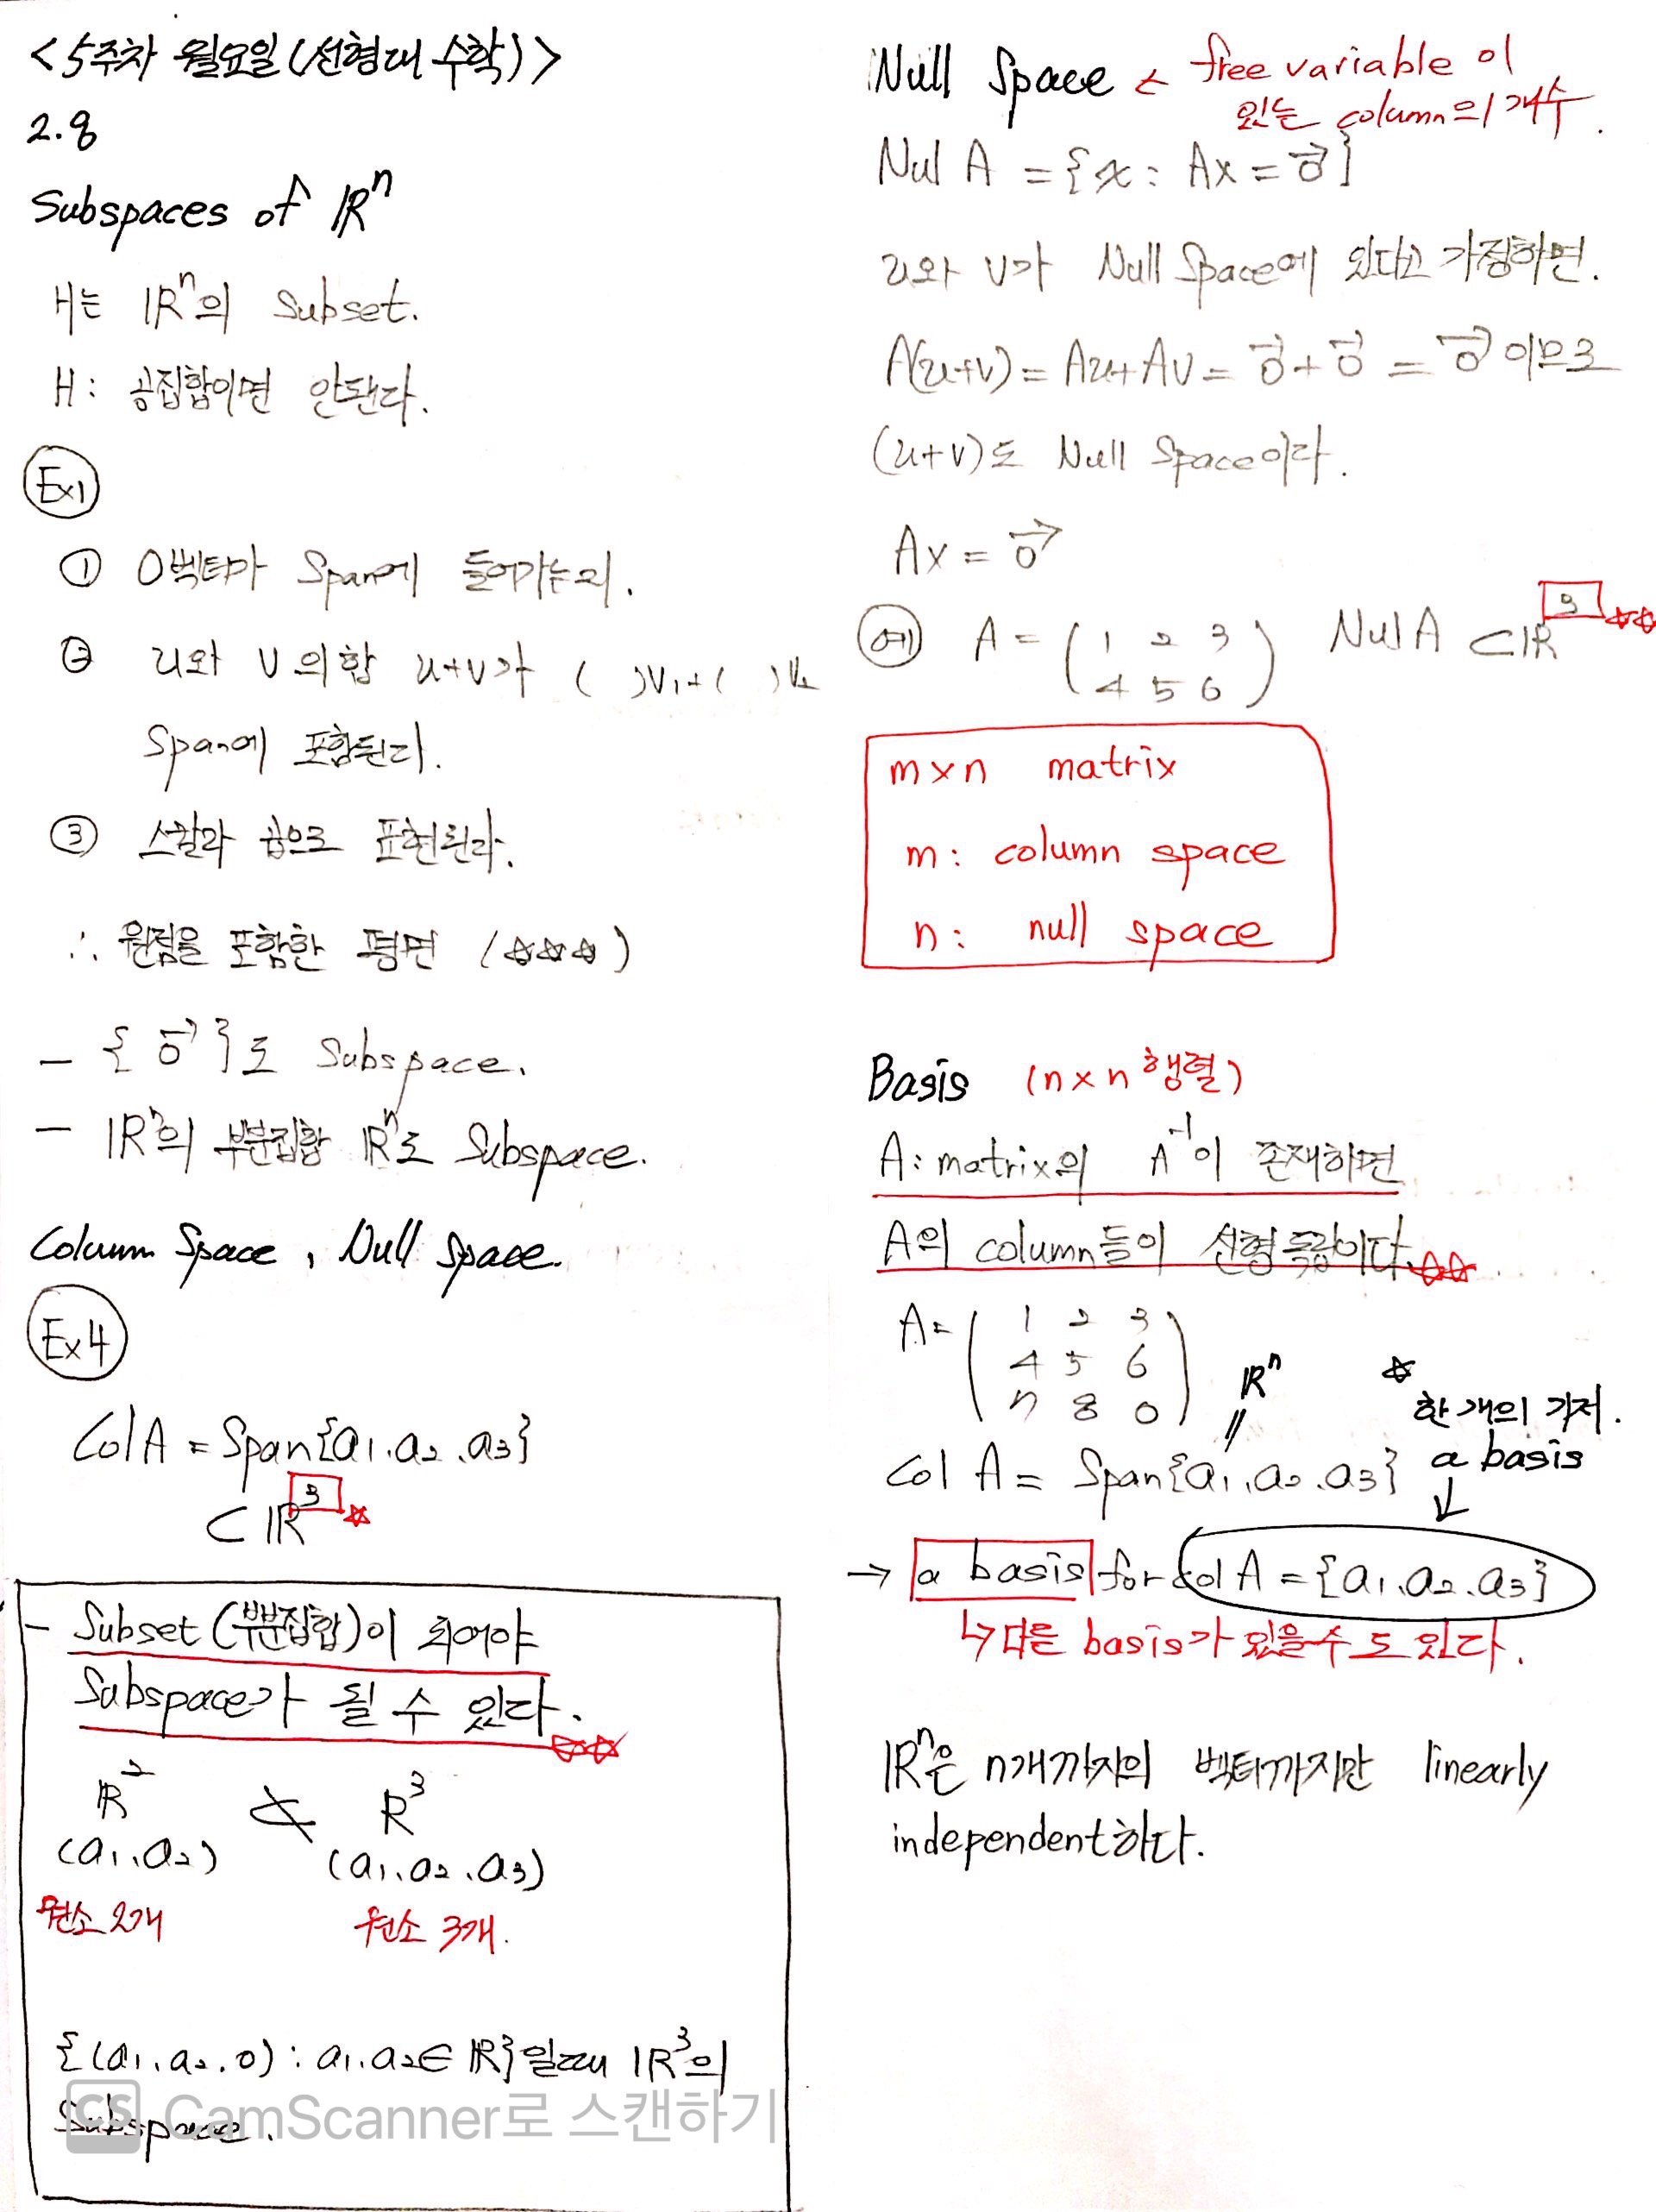 <5주차 월요일(선형대수학)>
2.8
Subspaces of ℝⁿ
H는 ℝⁿ의 Subset.
H: 공집합이면 안됀다.
Ex1
① 0벡터가 Span에 들어가는지.
② u와 v의 합 u+v가 ( )v₁+( )v₂
Span에 포함된다.
③ 스칼라 곱으로 표현된다.
∴ 원점을 포함한 평면 (☆☆☆)
- {0⃗}도 Subspace.
- ℝⁿ의 부분집합 ℝⁿ도 Subspace.
Column Space, Null Space.
Ex4
Col A = Span{a₁, a₂, a₃}
⊂ ℝ³ ☆
- Subset(부분집합)이 되어야
Subspace가 될 수 있다. ☆☆
ℝ² ⊄ ℝ³
(a₁, a₂) (a₁, a₂, a₃)
원소 2개 원소 3개.
{(a₁, a₂, 0) : a₁, a₂ ∈ ℝ}일때 ℝ³의
Subspace.
CS CamScanner로 스캔하기
Null Space ← free variable이
있는 column의 개수.
Nul A = {x : Ax = 0⃗}
u와 v가 Null Space에 있다고 가정하면.
A(u+v) = Au+Av = 0⃗+0⃗ = 0⃗이므로
(u+v)도 Null Space이다.
Ax = 0⃗
예 A = (1 2 3 Nul A ⊂ ℝ³ ☆☆
4 5 6)
m×n matrix
m: column space
n: null space
Basis (n×n 행렬)
A: matrix의 A⁻¹이 존재하면
A의 column들이 선형 독립이다. ☆☆
A = (1 2 3
4 5 6
7 8 0)
ℝⁿ
||
☆ 한 개의 기저.
a basis
↓
Col A = Span{a₁, a₂, a₃}
→ a basis for Col A = {a₁, a₂, a₃}
↳ 다른 basis가 있을 수 도 있다.
ℝⁿ은 n개까지의 벡터까지만 linearly
independent하다.